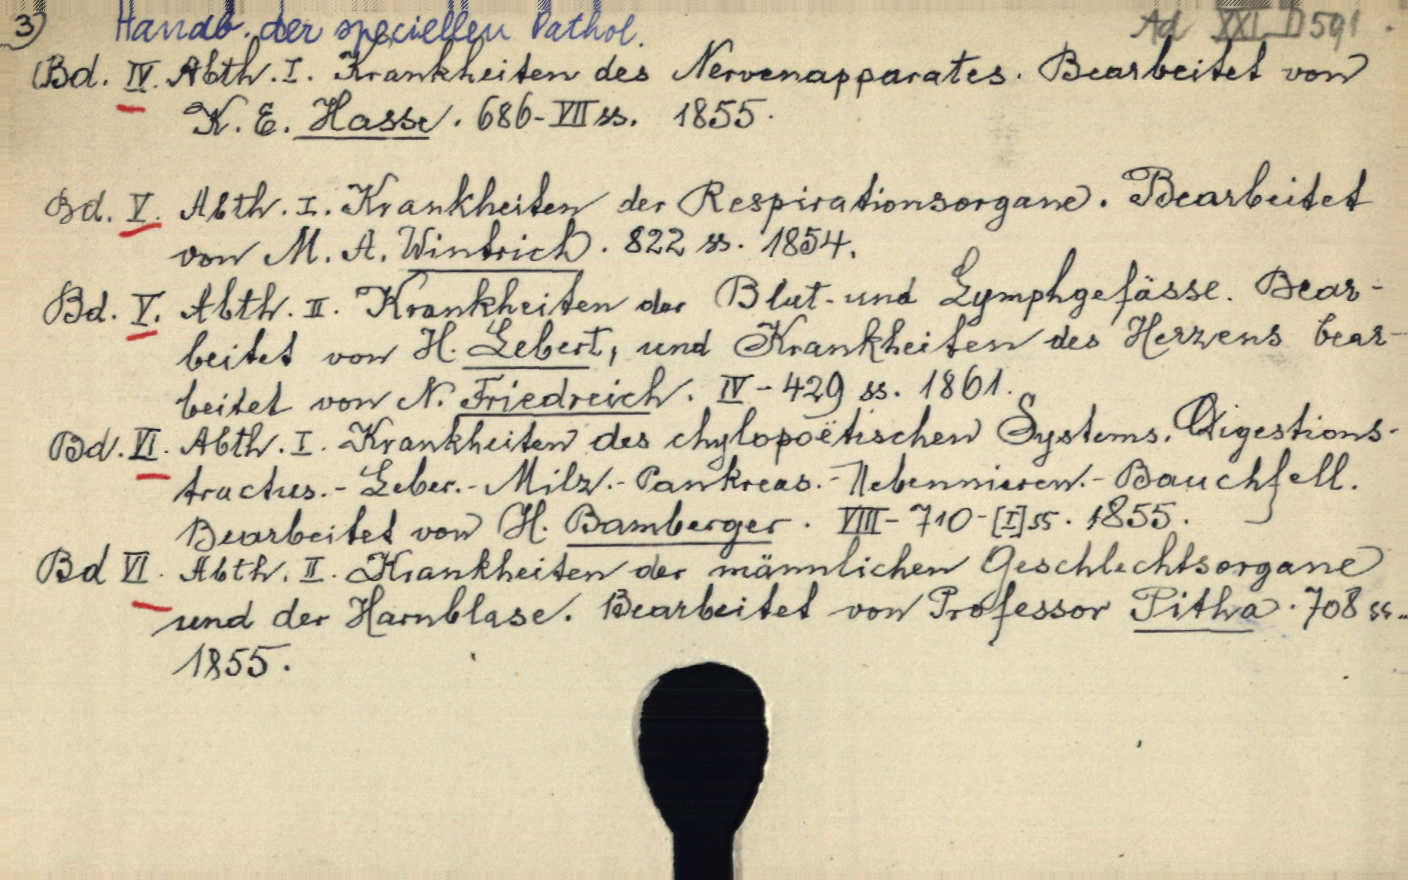 3) Handb. der speciellen Pathol. Ad XXI. D 591.
Bd. IV. Abth. I. Krankheiten des Nervenapparates. Bearbeitet von
K. E. Hasse. 686-VII ss. 1855.
Bd. V. Abth. I. Krankheiten der Respirationsorgane. Bearbeitet
von M. A. Wintrich. 822 ss. 1854.
Bd. V. Abth. II. Krankheiten der Blut- und Lymphgefässe. Bear-
beitet von H. Lebert, und Krankheiten des Herzens bear-
beitet von N. Friedreich. IV - 429 ss. 1861.
Bd. VI. Abth. I. Krankheiten des chylopoëtischen Systems. Digestions-
tractus.- Leber.- Milz.- Pankreas.- Nebennieren.- Bauchfell.
Bearbeitet von H. Bamberger. VIII- 710-[I] ss. 1855.
Bd VI. Abth. II. Krankheiten der männlichen Geschlechtsorgane
und der Harnblase. Bearbeitet von Professor Pitha. 708 ss..
1855.